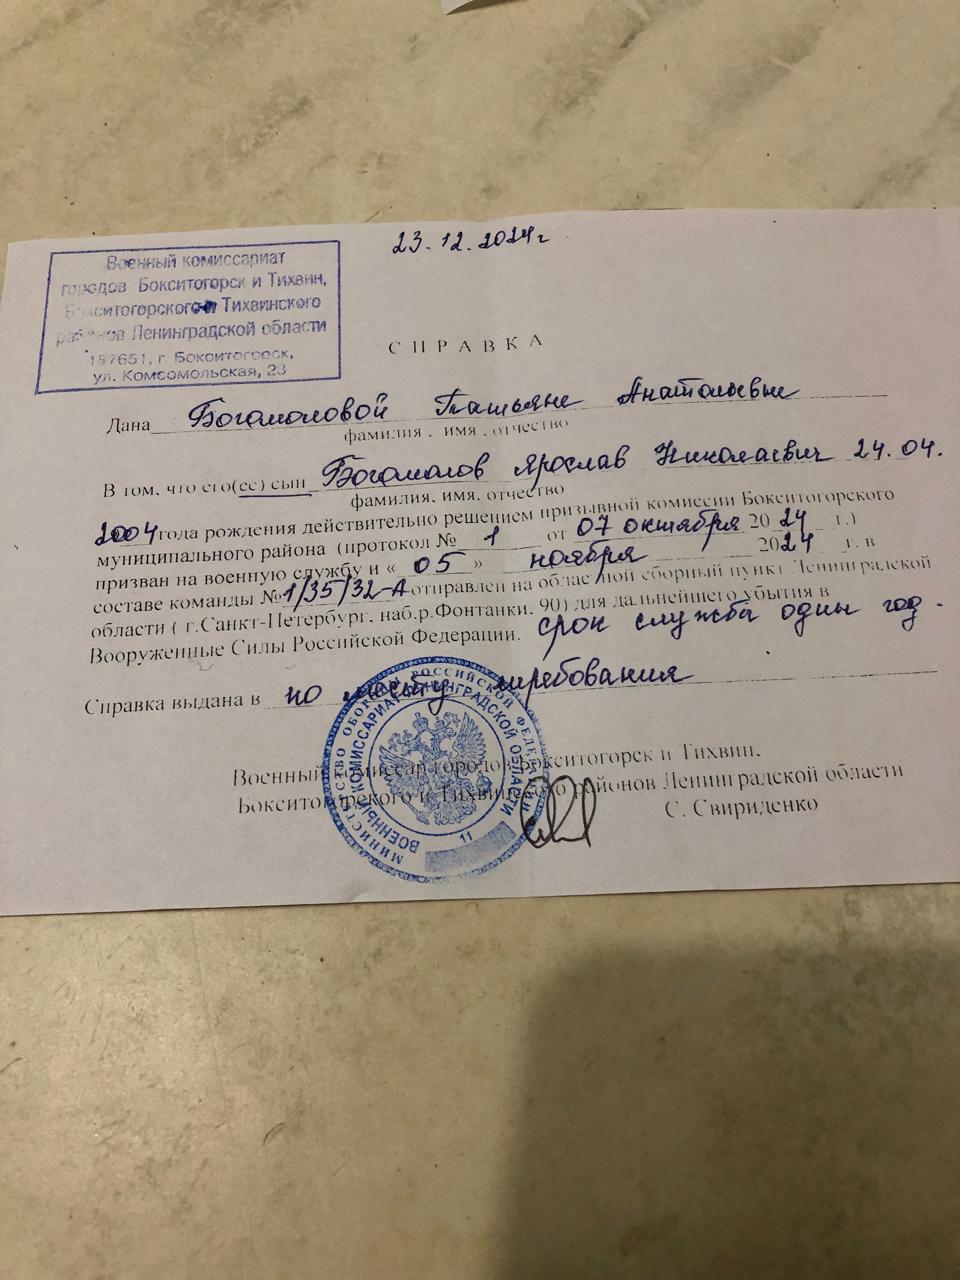 23.12.2024г
Военный комиссариат
городов Бокситогорск и Тихвин,
Бокситогорского и Тихвинского
районов Ленинградской области
187651, г. Бокситогорск,
ул. Комсомольская, 23
СПРАВКА
Дана Богомоловой Татьяне Анатольевне
фамилия, имя, отчество
В том, что его(ее) сын Богомолов Ярослав Николаевич 24.04.
фамилия, имя, отчество
2004 года рождения действительно решением призывной комиссии Бокситогорского
муниципального района (протокол № 1 от 07 октября 2024 г.)
призван на военную службу и « 05 » ноября 2024 г. в
составе команды № 1/35/32-А отправлен на областной сборный пункт Ленинградской
области ( г.Санкт-Петербург, наб.р.Фонтанки, 90) для дальнейшего убытия в
Вооруженные Силы Российской Федерации. срок службы один год.
Справка выдана в по месту требования
Военный комиссар городов Бокситогорск и Тихвин,
Бокситогорского и Тихвинского районов Ленинградской области
С. Свириденко
МИНИСТЕРСТВО ОБОРОНЫ РОССИЙСКОЙ ФЕДЕРАЦИИ
ВОЕННЫЙ КОМИССАРИАТ ЛЕНИНГРАДСКОЙ ОБЛАСТИ
11